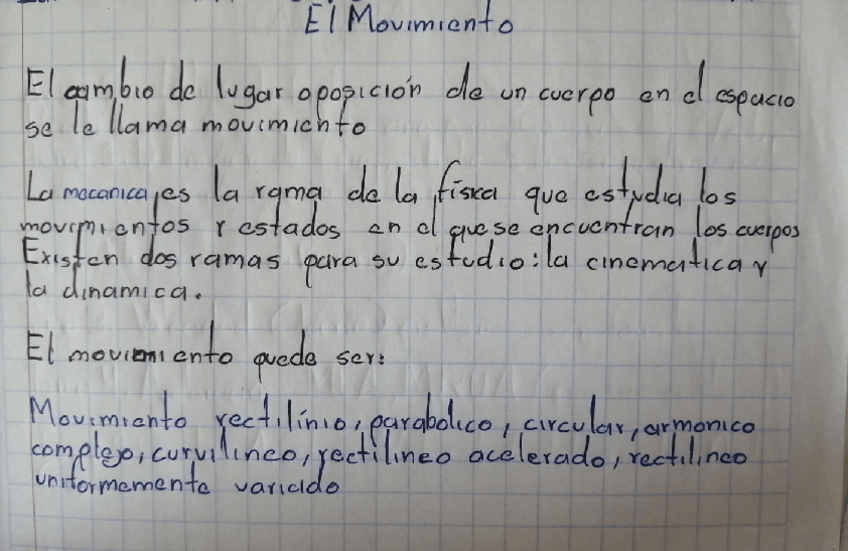 El Movimiento
El cambio de lugar o posición de un cuerpo en el espacio
se le llama movimiento
La mecanica, es la rama de la física que estudia los
movimientos y estados en el que se encuentran los cuerpos
Existen dos ramas para su estudio: la cinematica y
la dinamica.
El movimiento puede ser:
Movimiento rectilínio, parabolico, circular, armonico
complejo, curvilineo, rectilineo acelerado, rectilineo
uniformemente variado